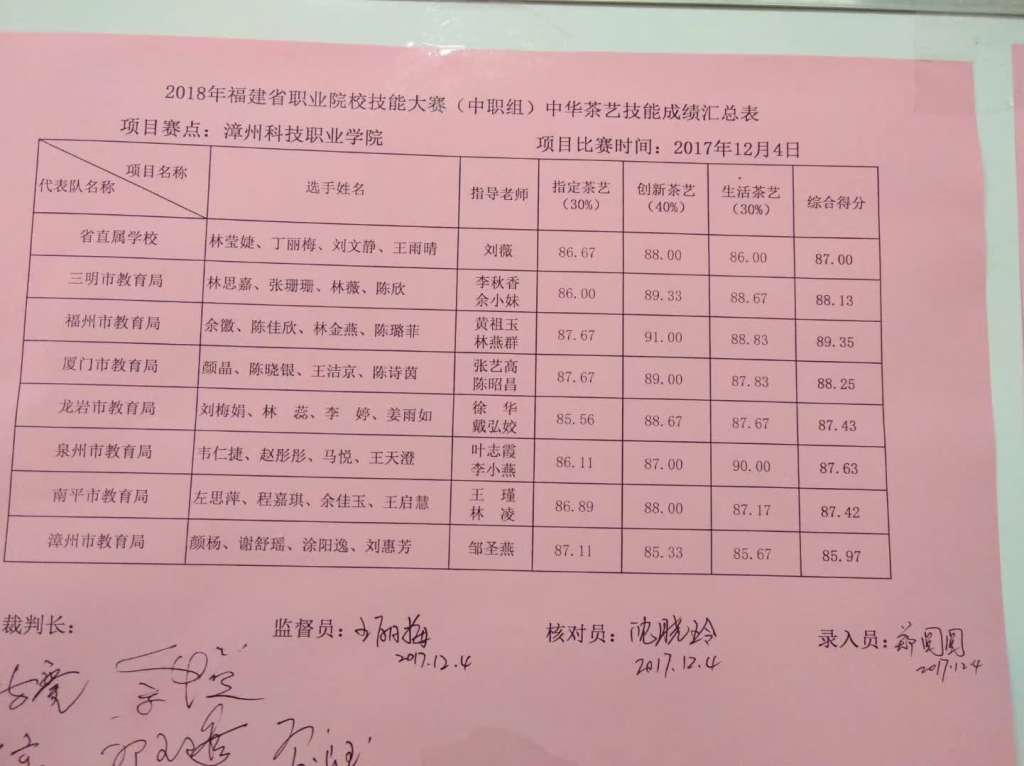 2018年福建省职业院校技能大赛（中职组）中华茶艺技能成绩汇总表
项目赛点：漳州科技职业学院 项目比赛时间：2017年12月4日
项目名称
代表队名称 选手姓名 指导老师 指定茶艺（30%） 创新茶艺（40%） 生活茶艺（30%） 综合得分
省直属学校 林莹婕、丁丽梅、刘文静、王雨晴 刘薇 86.67 88.00 86.00 87.00
三明市教育局 林思嘉、张珊珊、林薇、陈欣 李秋香 余小妹 86.00 89.33 88.67 88.13
福州市教育局 余徽、陈佳欣、林金燕、陈璐菲 黄祖玉 林燕群 87.67 91.00 88.83 89.35
厦门市教育局 颜晶、陈晓银、王洁京、陈诗茵 张艺高 陈昭昌 87.67 89.00 87.83 88.25
龙岩市教育局 刘梅娟、林 蕊、李 婷、姜雨如 徐 华 戴弘姣 85.56 88.67 87.67 87.43
泉州市教育局 韦仁捷、赵彤彤、马悦、王天澄 叶志霞 李小燕 86.11 87.00 90.00 87.63
南平市教育局 左思萍、程嘉琪、余佳玉、王启慧 王 瑾 林 凌 86.89 88.00 87.17 87.42
漳州市教育局 颜杨、谢舒瑶、涂阳逸、刘惠芳 邹圣燕 87.11 85.33 85.67 85.97
裁判长： 监督员：王丽梅 核对员：沈晓玲 录入员：郑圆圆
2017.12.4 2017.12.4 2017.12.4